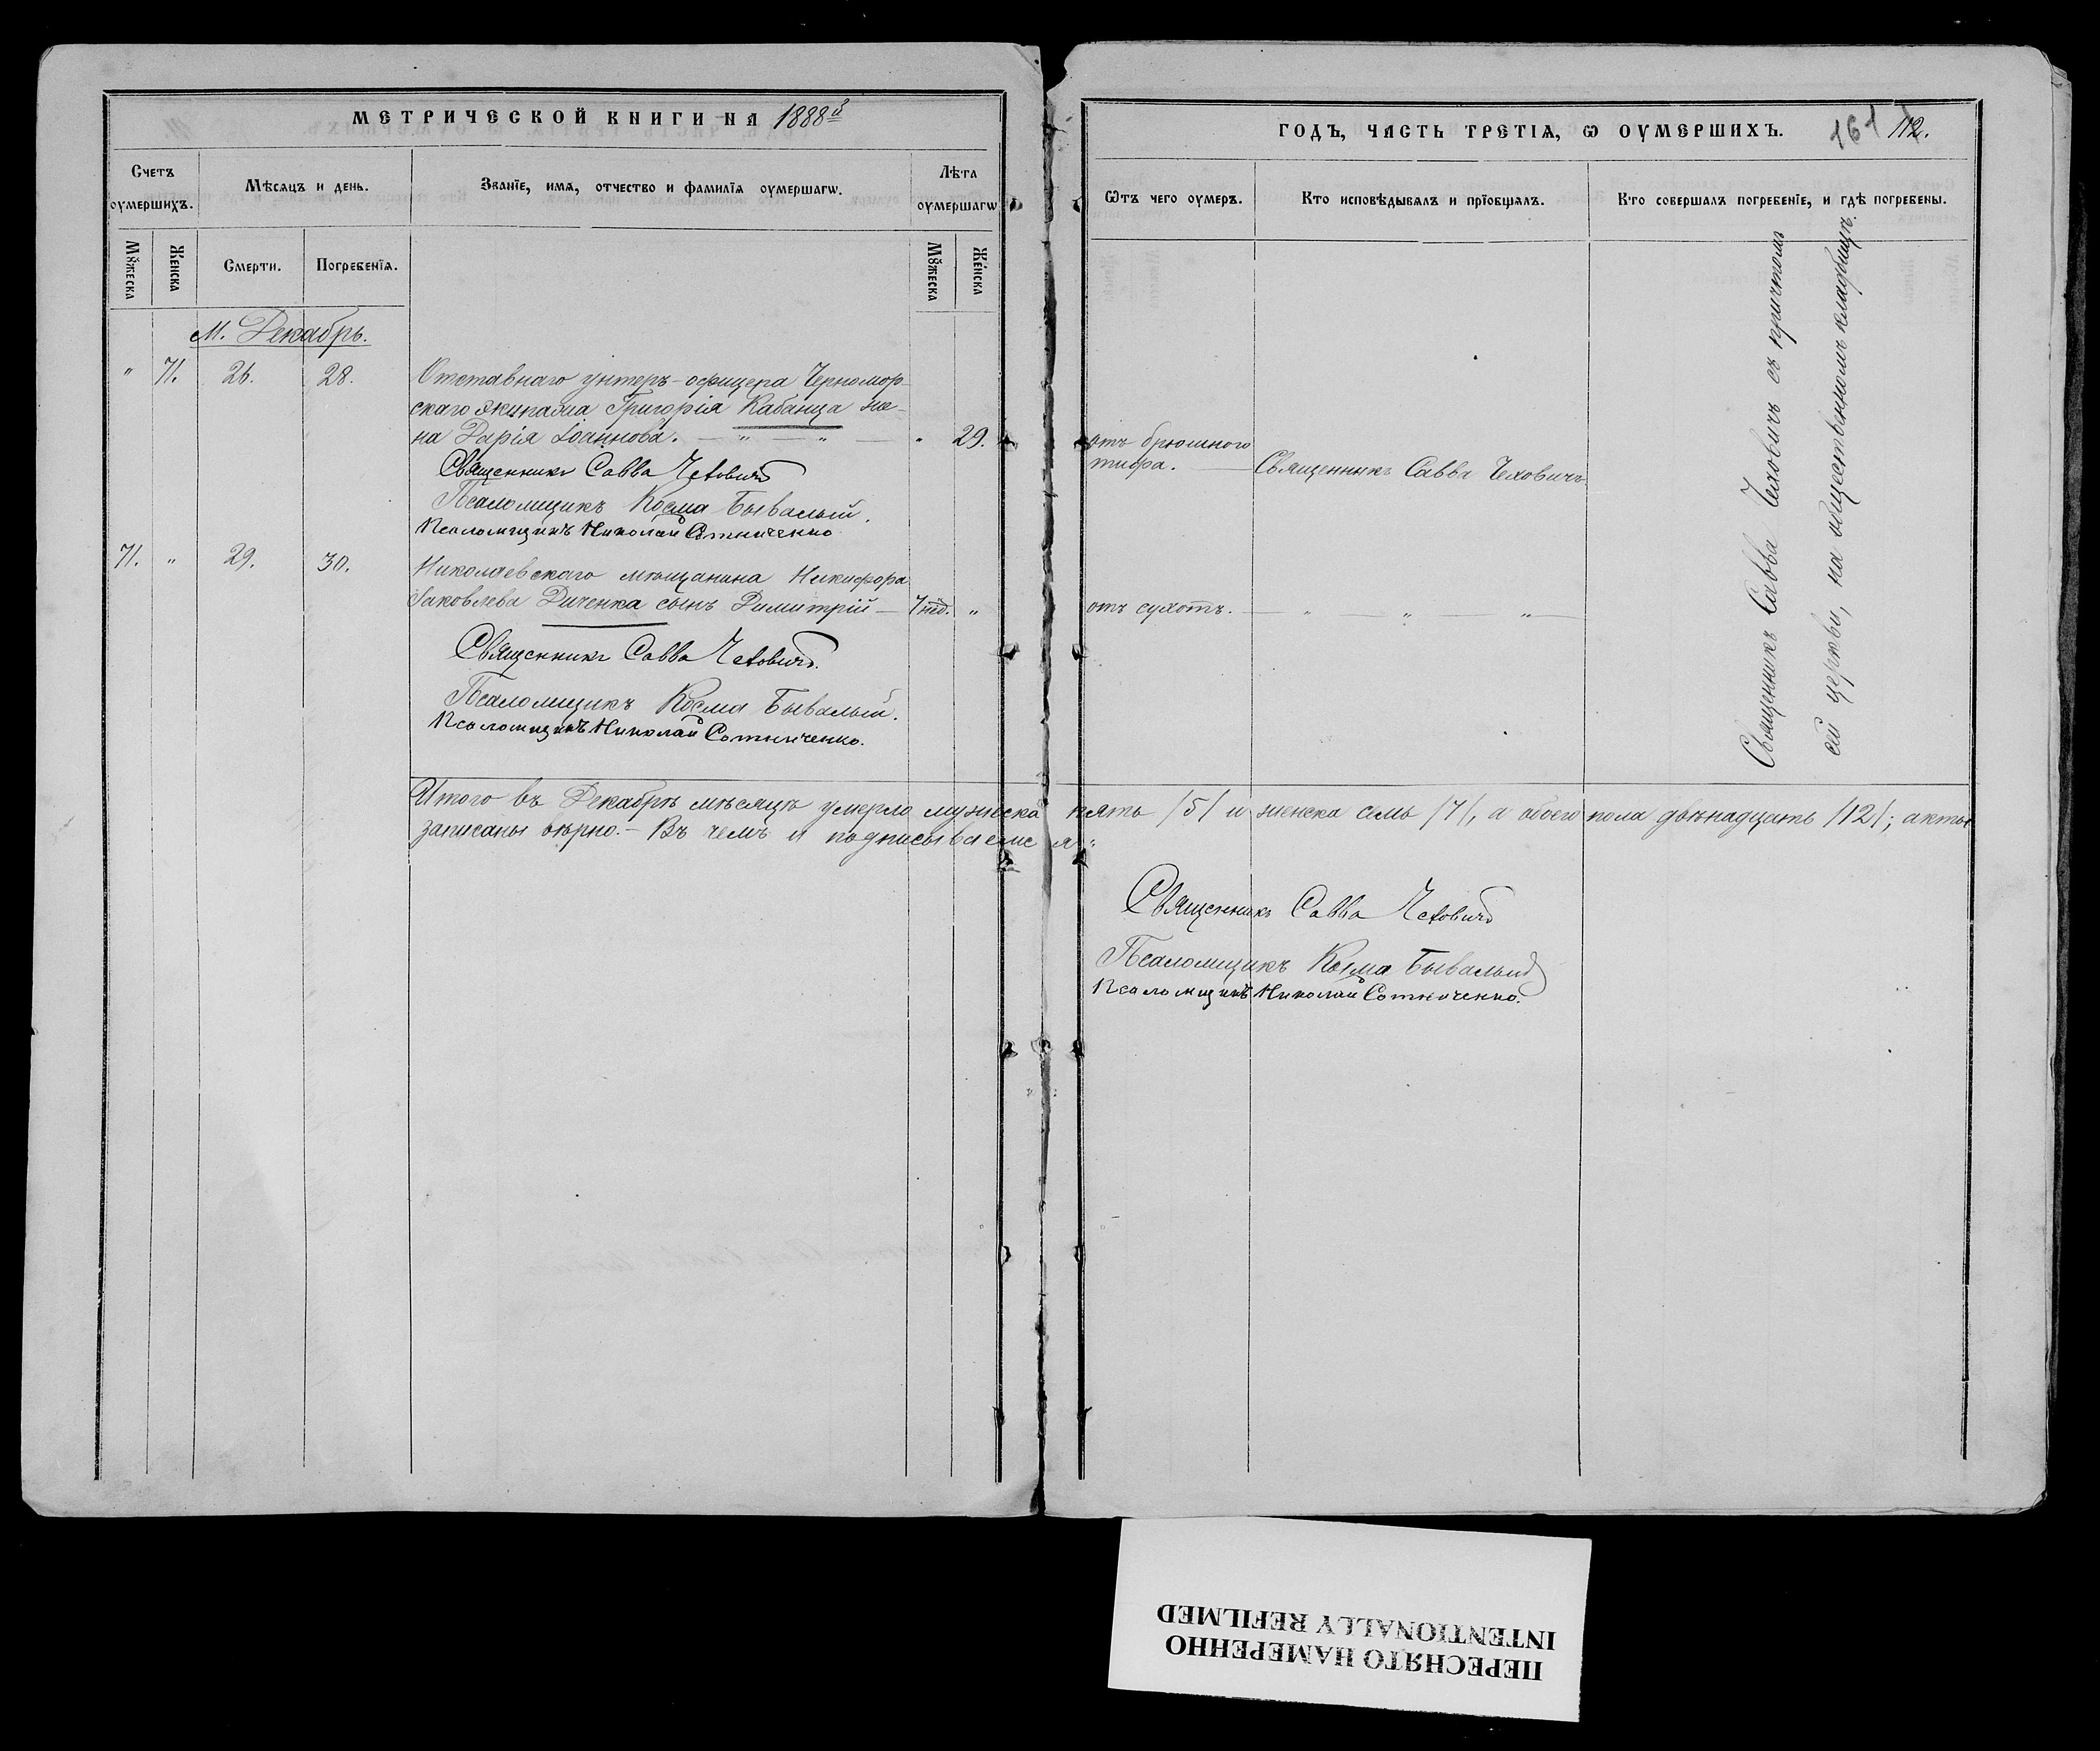 МЕТРИЧЕСКОЙ КНИГИ НА 1888й
Счетъ оумершихъ.
Мѣсяцъ и день.
Званїе, имя, отчество и фамилїя оумершагѡ.
Лѣта оумершагѡ
Мꙋжеска
Женска
Смерти.
Погребенїя.
Мꙋжеска
Женска
М. Декабрь.
" 71. 26. 28. Отставнаго унтеръ-офицера Черномор-
скаго экипажа Григорія Кабанца же-
на Дарія Іоаннова. — " — " — " 29.
Священникъ Савва Чеховичъ
Псаломщикъ Косма Бывалый.
Псаломщикъ Николай Сотниченко
71. " 29. 30. Николаевскаго мѣщанина Никифора
Іаковлева Диченка сынъ Димитрій — 7 нед. "
Священникъ Савва Чеховичъ.
Псаломщикъ Косма Бывалый.
Псаломщикъ Николай Сотниченко.
Итого въ Декабрѣ мѣсяцѣ умерло мужеска пять /5/ и женска семь /7/, а обоего пола двѣнадцать /12/; акты
записаны вѣрно. — Въ чемъ и подписываемся:
ГОДЪ, ЧАСТЬ ТРЕТІЯ, Ѡ ОУМЕРШИХЪ.
161 112.
Ѿтъ чего оумеръ.
Кто исповѣдывалъ и прїобщалъ.
Кто совершалъ погребенїе, и гдѣ погребены.
отъ брюшного
тифа. — Священникъ Савва Чеховичъ
отъ сухотъ. — " — " — " —
Священникъ Савва Чеховичъ съ причтомъ
сей церкви, на общественномъ кладбищѣ.
Священникъ Савва Чеховичъ
Псаломщикъ Косма Бывалый
Псаломщикъ Николай Сотниченко.
ПЕРЕСНЯТО НАМЕРЕННО
INTENTIONALLY REFILMED